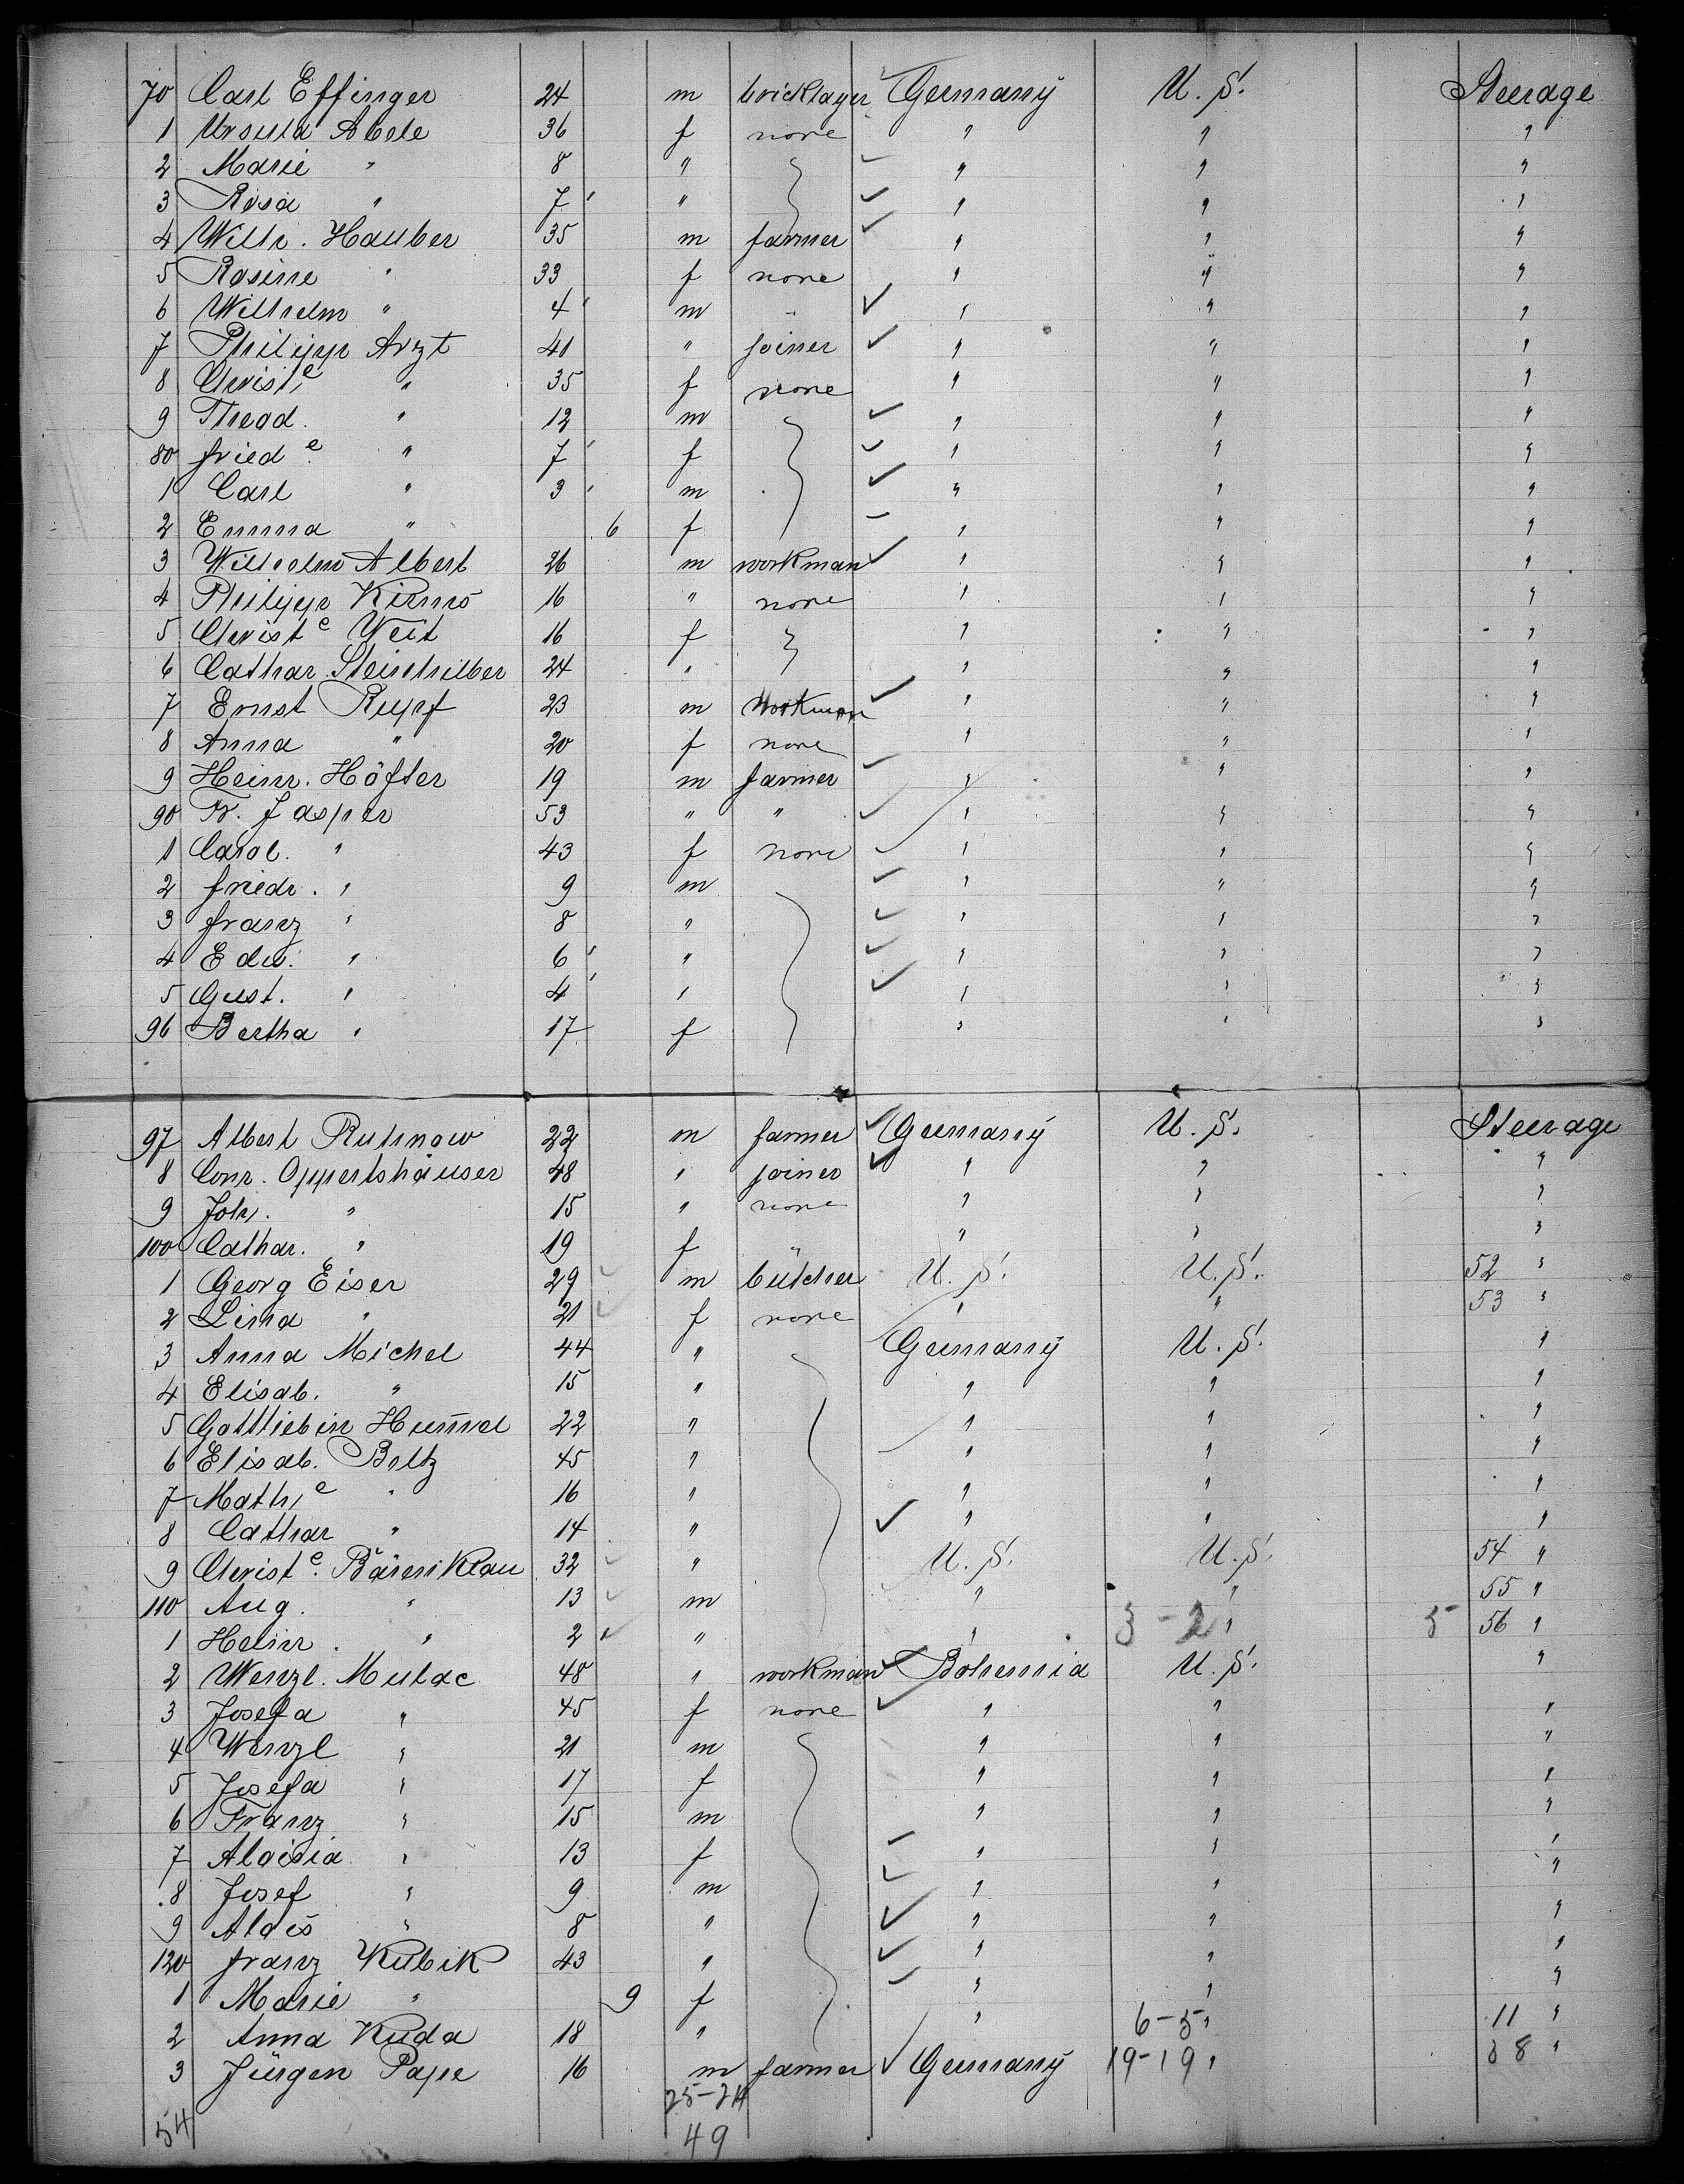 70 Carl Effinger 24 m bricklayer Germany U. S. Steerage
1 Ursula Abele 36 f none " " "
2 Marie " 8 " " " "
3 Rosa " 7 " " " "
4 Wilh. Hauber 35 m farmer " " "
5 Rosine " 33 f none " " "
6 Wilhelm " 4 m " " " "
7 Philipp Arzt 41 " joiner " " "
8 Christe " 35 f none " " "
9 Thead. " 12 m " " "
80 friede " 7 f " " "
1 Carl " 3 m " " "
2 Emma " 6 f " " "
3 Wilhelm Albert 26 m workman " " "
4 Philipp Kirms 16 " none " " "
5 Christe Weit 16 f " " "
6 Cathar. 24 " " " "
7 Ernst Rupf 23 m workman " " "
8 Anna " 20 f none " " "
9 Heinr. Höfter 19 m farmer " " "
90 Fr. Jasper 53 " " " " "
1 Carol. " 43 f none " " "
2 friedr. " 9 m " " "
3 franz " 8 " " " "
4 Edw. " 6 " " " "
5 Gust. " 4 " " " "
96 Bertha " 17 f " " "
97 Albert Rutnow 22 m farmer Germany U. S. Steerage
8 Conr. Oppertshäuser 48 " joiner " " "
9 Joh. " 15 " none " " "
100 Cathar. " 19 f " " "
1 Georg Eiser 29 m bütcher U. S. U. S. 52 "
2 Lina " 21 f none " " 53 "
3 Anna Michel 44 " Germany U. S. "
4 Elisab. " 15 " " " "
5 Gottliebin Hum̄el 22 " " " "
6 Elisab. Beltz 45 " " " "
7 Mathe " 16 " " " "
8 Cathar " 14 " " " "
9 Christe. Bärniklau 32 " U. S. U. S. 54 "
110 Aug. " 13 m " " 55 "
1 Heinr. " 2 " " 3-2 " 5 56 "
2 Wenzl. Mulac 48 " workman Bohemia U. S. "
3 Josefa " 45 f none " " "
4 Wenzl " 21 m " " "
5 Josefa " 17 f " " "
6 Franz " 15 m " " "
7 Aloisia " 13 f " " "
8 Josef " 9 m " " "
9 Alois " 8 " " " "
120 franz Kubik 43 " " " "
1 Marie " 9 f " " "
2 Anna Kuda 18 " " 6-5 " 11 "
3 Jürgen Pape 16 m farmer Germany 19-19 " 38 "
25-24
54 49